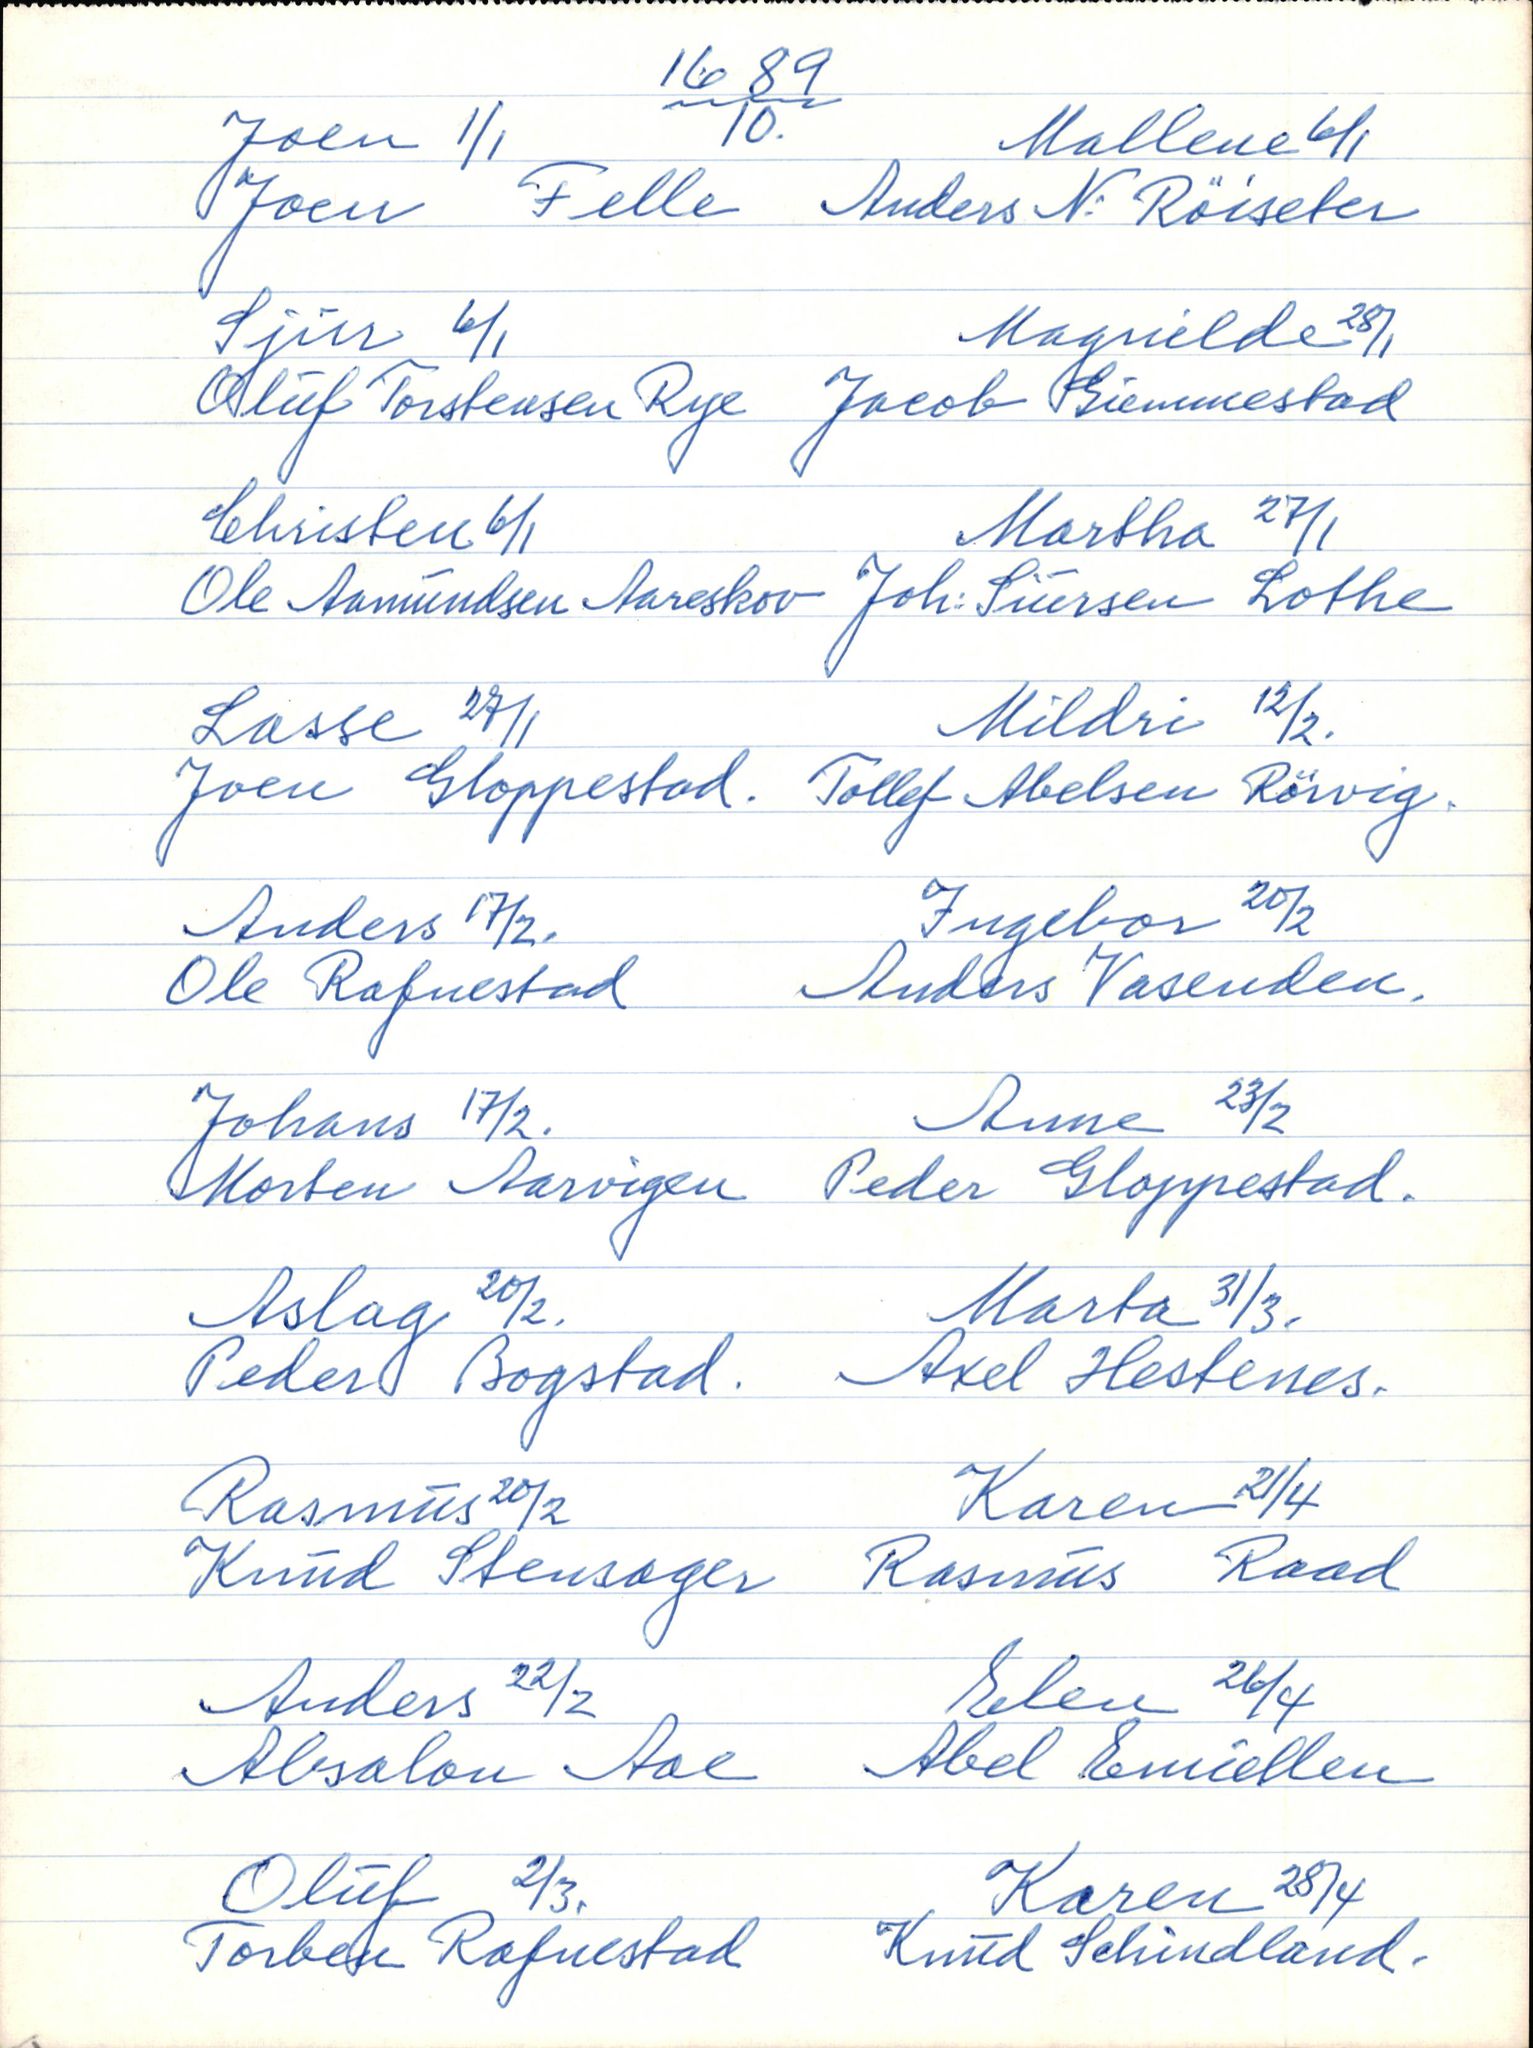 1689
10.
Joen 1/1 Mallene 6/1
Joen Felle Anders N: Röiseter
Sjür 6/1 Magnielde 28/1
Olüf Torstensen Rye Jacob Giemmestad
Christen 6/1 Martha 27/1
Ole Aamündsen Aareskov Joh: Siürsen Lothe
Lasse 27/1 Mildri 12/2.
Joen Gloppestad. Tollef Abelsen Rörvig.
Anders 17/2. Ingebor 20/2
Ole Rafnestad Anders Vasenden.
Johans 17/2. Anne 23/2
Morten Aarvigen Peder Gloppestad.
Aslag 20/2. Marta 31/3.
Peder Bogstad. Axel Hestenes.
Rasmüs 20/2 Karen 21/4
Knüd Stensager Rasmüs Raad
Anders 22/2 Elen 26/4
Absalon Aae Abel Emiellen
Olüf 2/3. Karen 28/4
Torben Rafnestad Knüd Schindland.